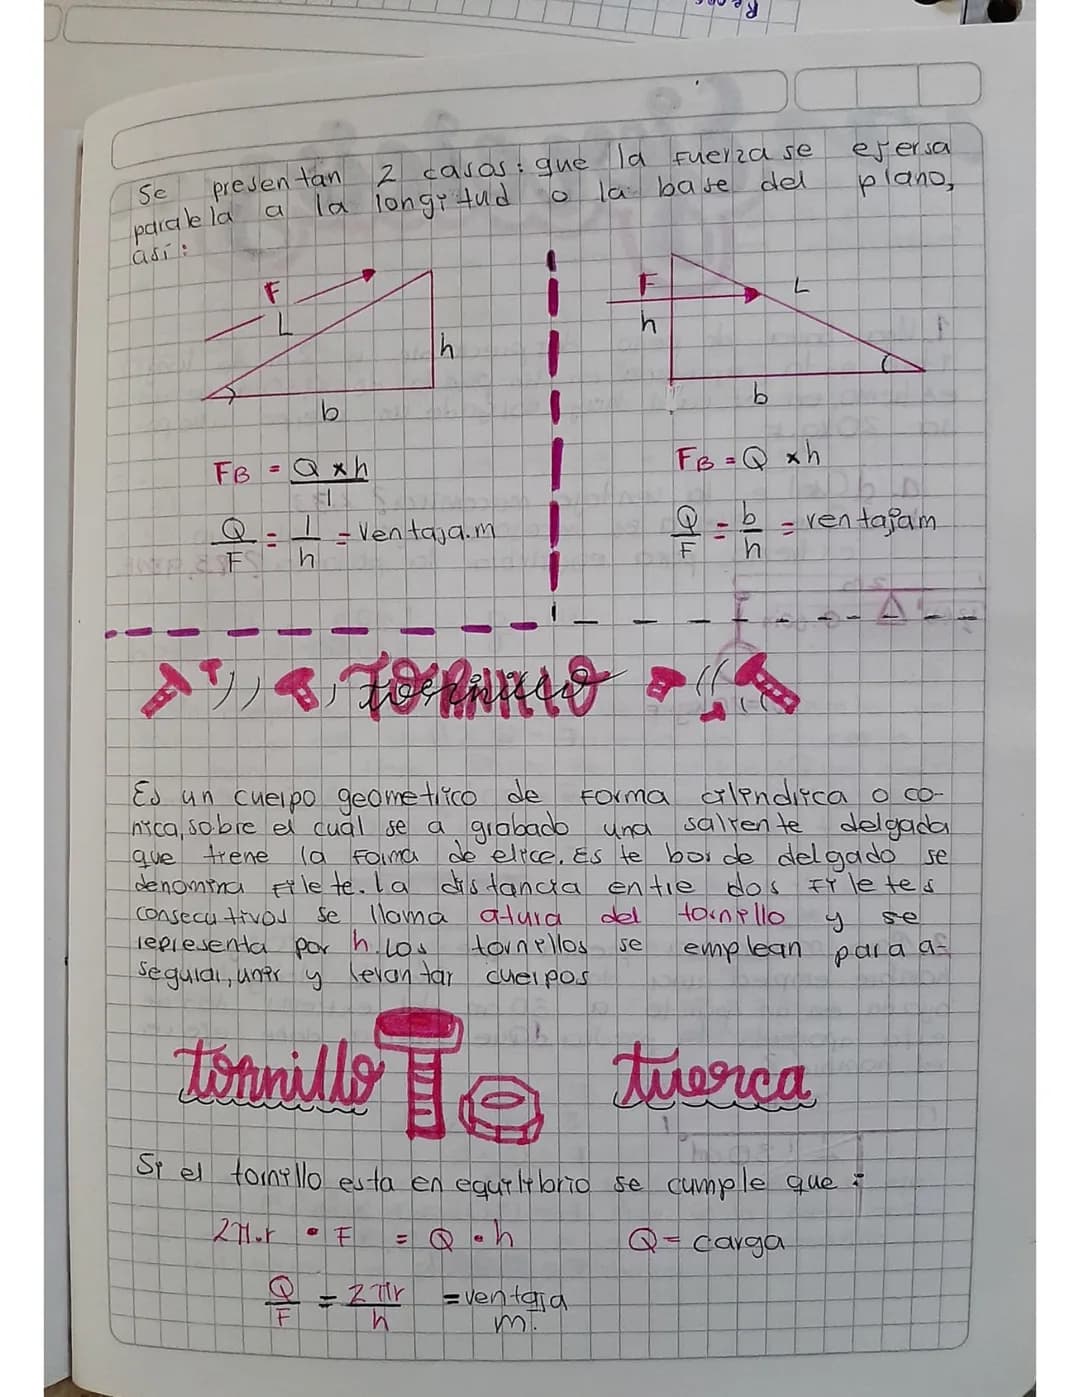 Se presentan 2 casos: que la fuerza se ejersa
paralela a la longitud o la base del plano,
así:
F
L
h
b
F
L
h
b
FB = Q x h
Q/F = l/h = Ventaja.m
FB = Q x h
Q/F = b/h = ventajam
TORNILLO
tornillo
Es un cuerpo geometrico de forma cilindrica o co-
nica, sobre el cual se a grabado una saliente delgada
que tiene la forma de elice. Es te borde delgado se
denomina filete. la distancia entre dos filetes
consecutivos se llama atura del tornillo y se
representa por h. Los tornillos se emplean para a-
segurar, unir y levantar cuerpos
tornillo tuerca
Si el tornillo esta en equilibrio se cumple que :
2π.r • F = Q • h Q = carga
Q/F = 2πr/h = ventaja
m.